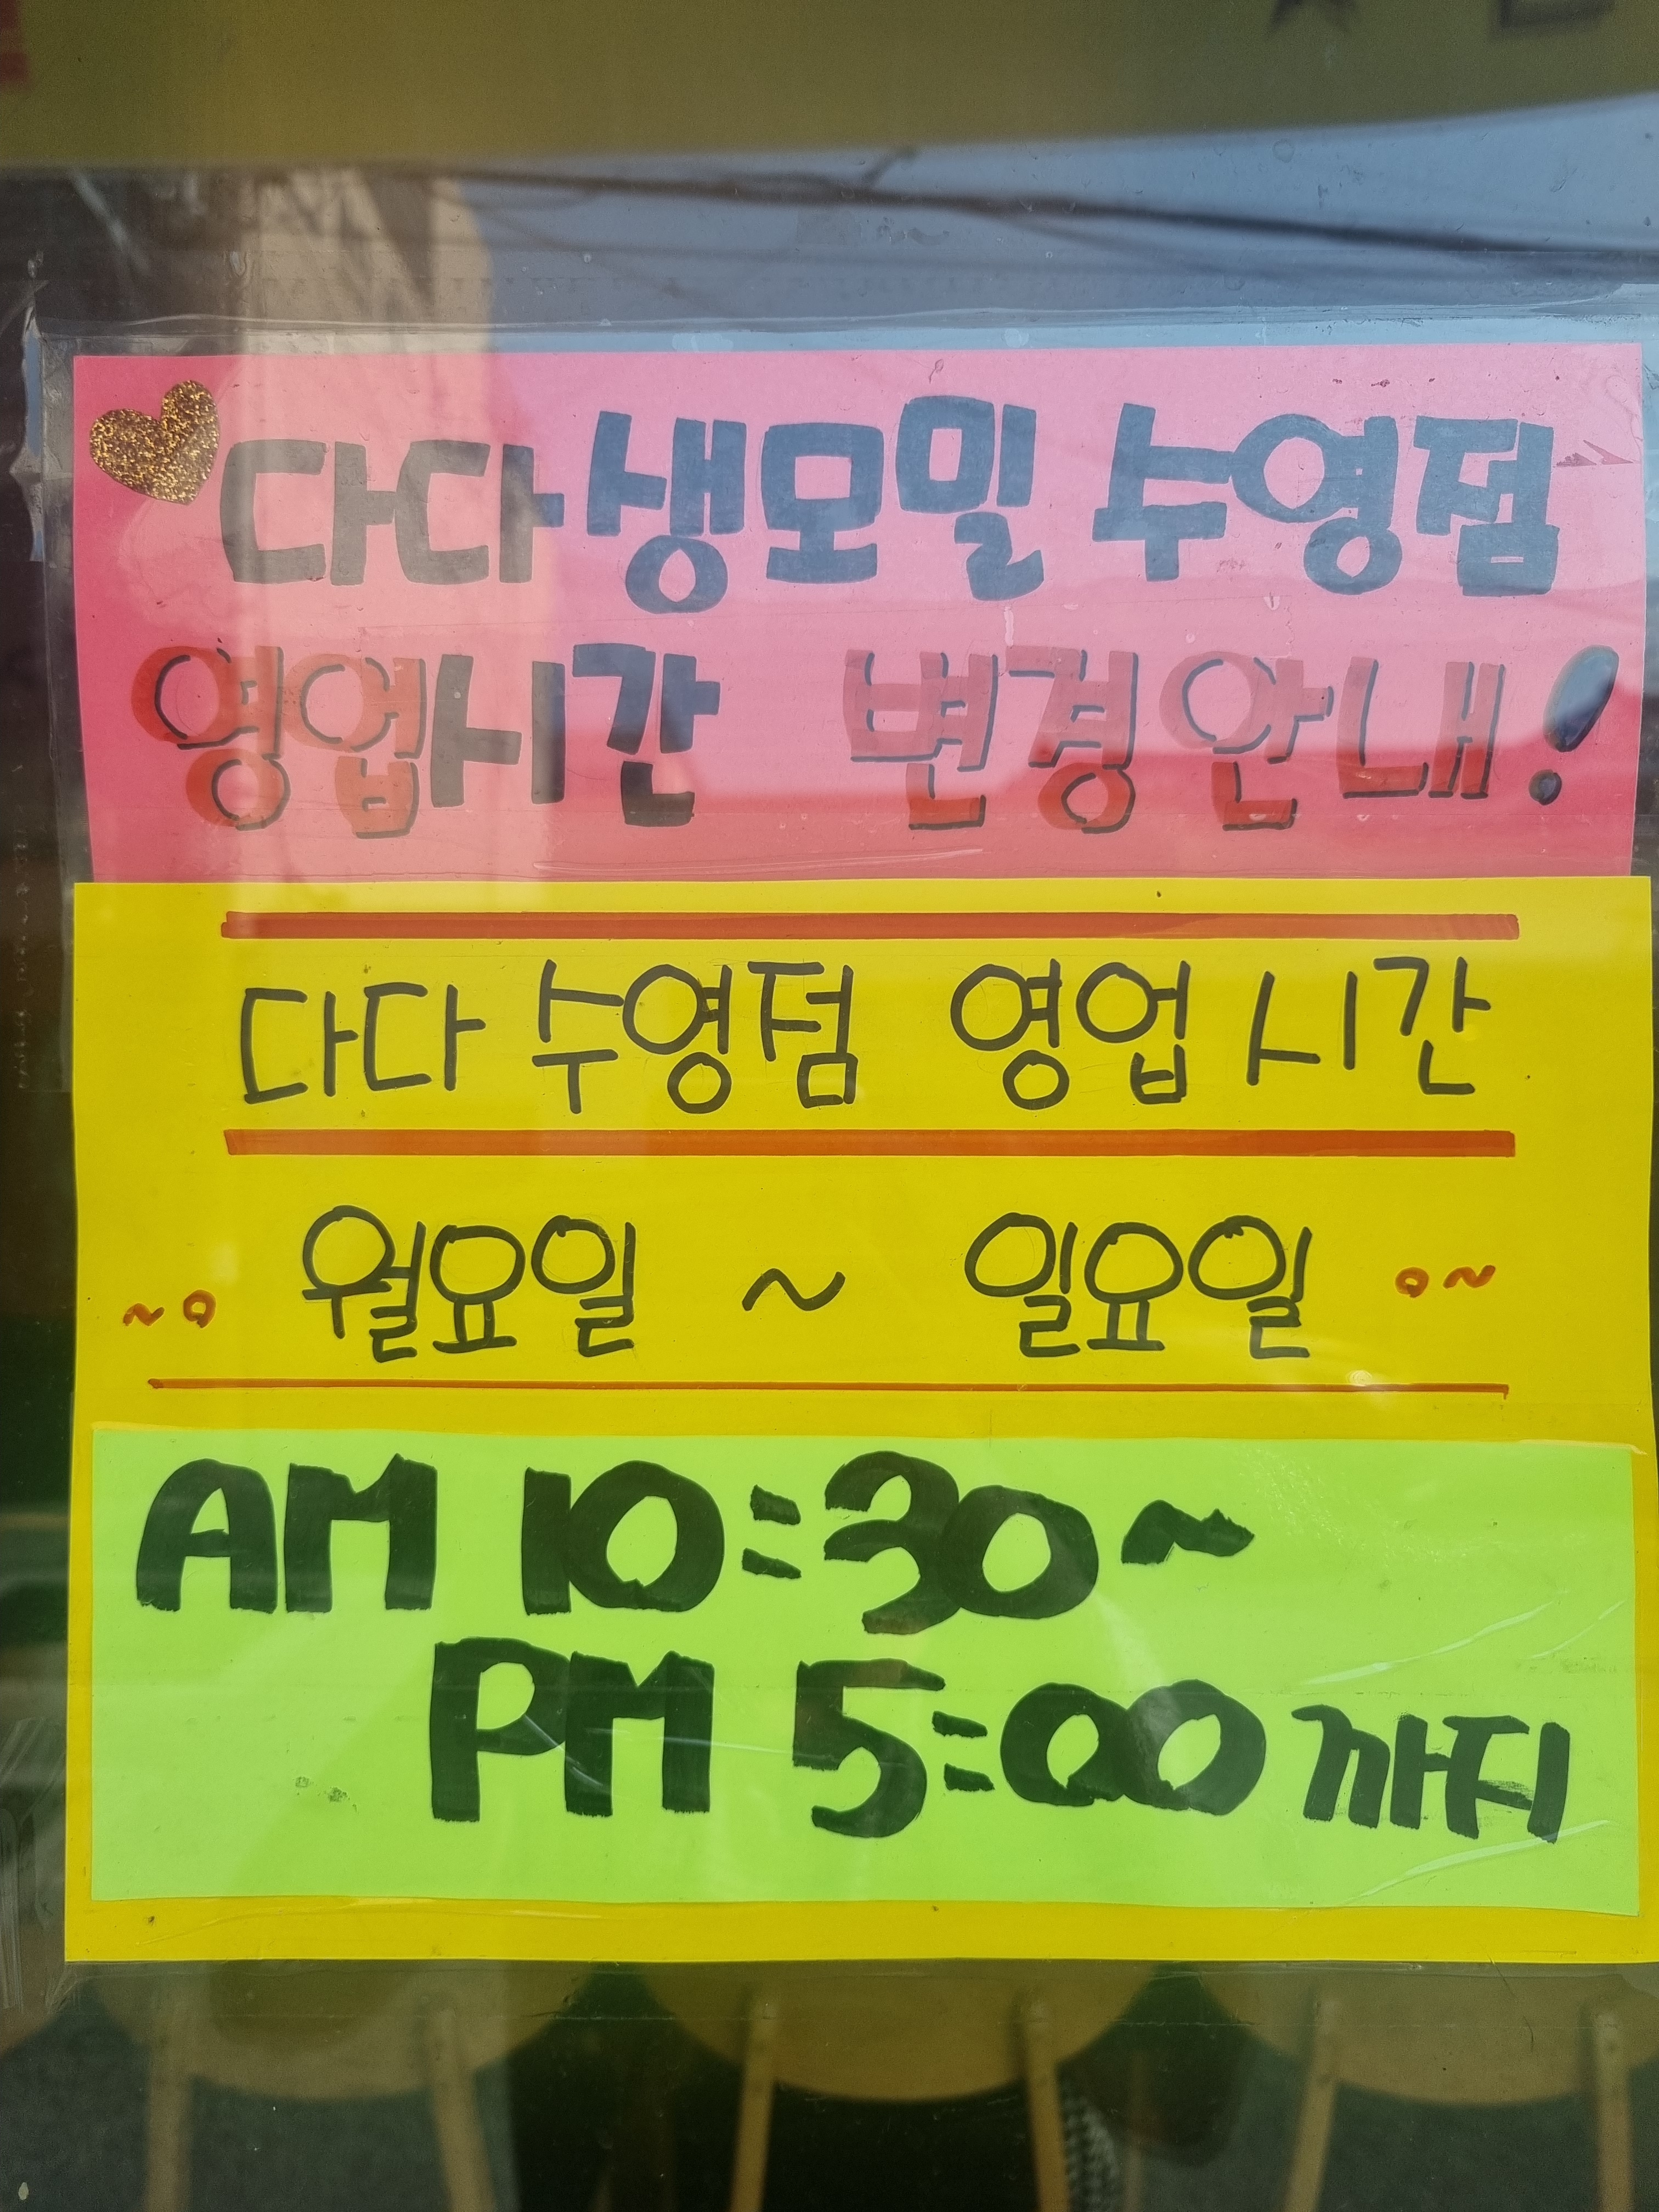 다다생모밀 수영점
영업시간 변경안내!
다다 수영점 영업시간
~o 월요일 ~ 일요일 o~
AM 10:30~
PM 5:00까지